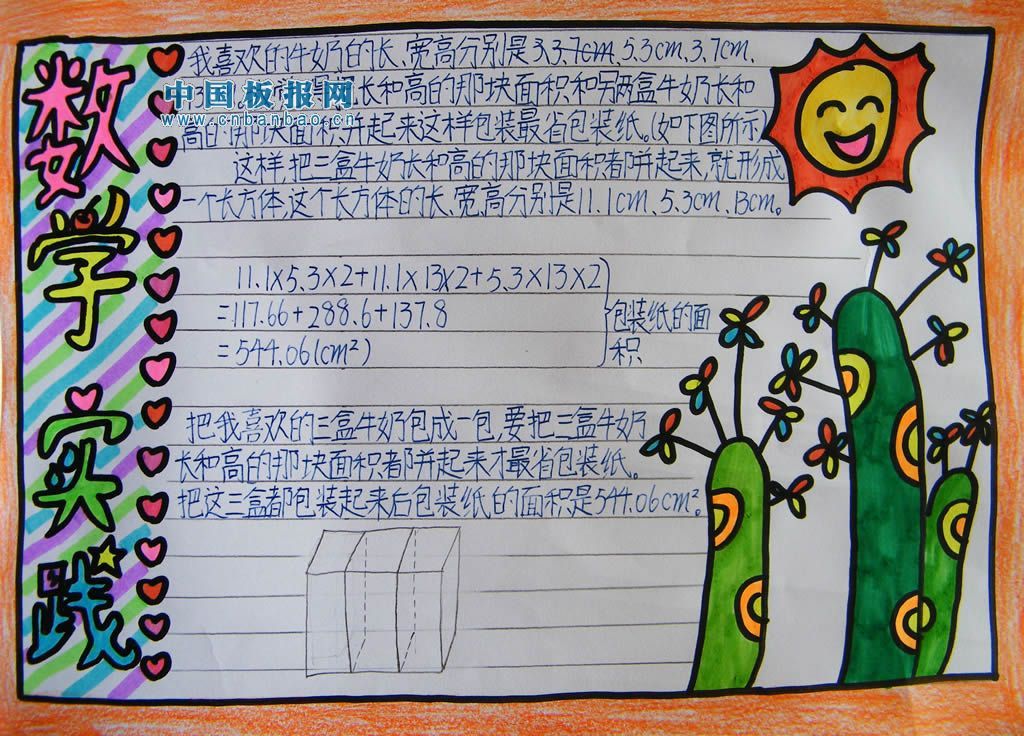 数学实践
我喜欢的牛奶的长、宽高分别是3.7cm、5.3cm、3.7cm、
中国板报网
www.cnbanbao.cn
长和高的那块面积和另两盒牛奶长和
高的那块面积并起来这样包装最省包装纸。(如下图所示)
这样把三盒牛奶长和高的那块面积都并起来,就形成
一个长方体,这个长方体的长、宽、高分别是11.1cm、5.3cm、13cm。
11.1×5.3×2+11.1×13×2+5.3×13×2
=117.66+288.6+137.8
=544.06(cm²)
包装纸的面
积
把我喜欢的三盒牛奶包成一包,要把三盒牛奶
长和高的那块面积都并起来才最省包装纸。
把这三盒都包装起来后包装纸的面积是544.06cm²。